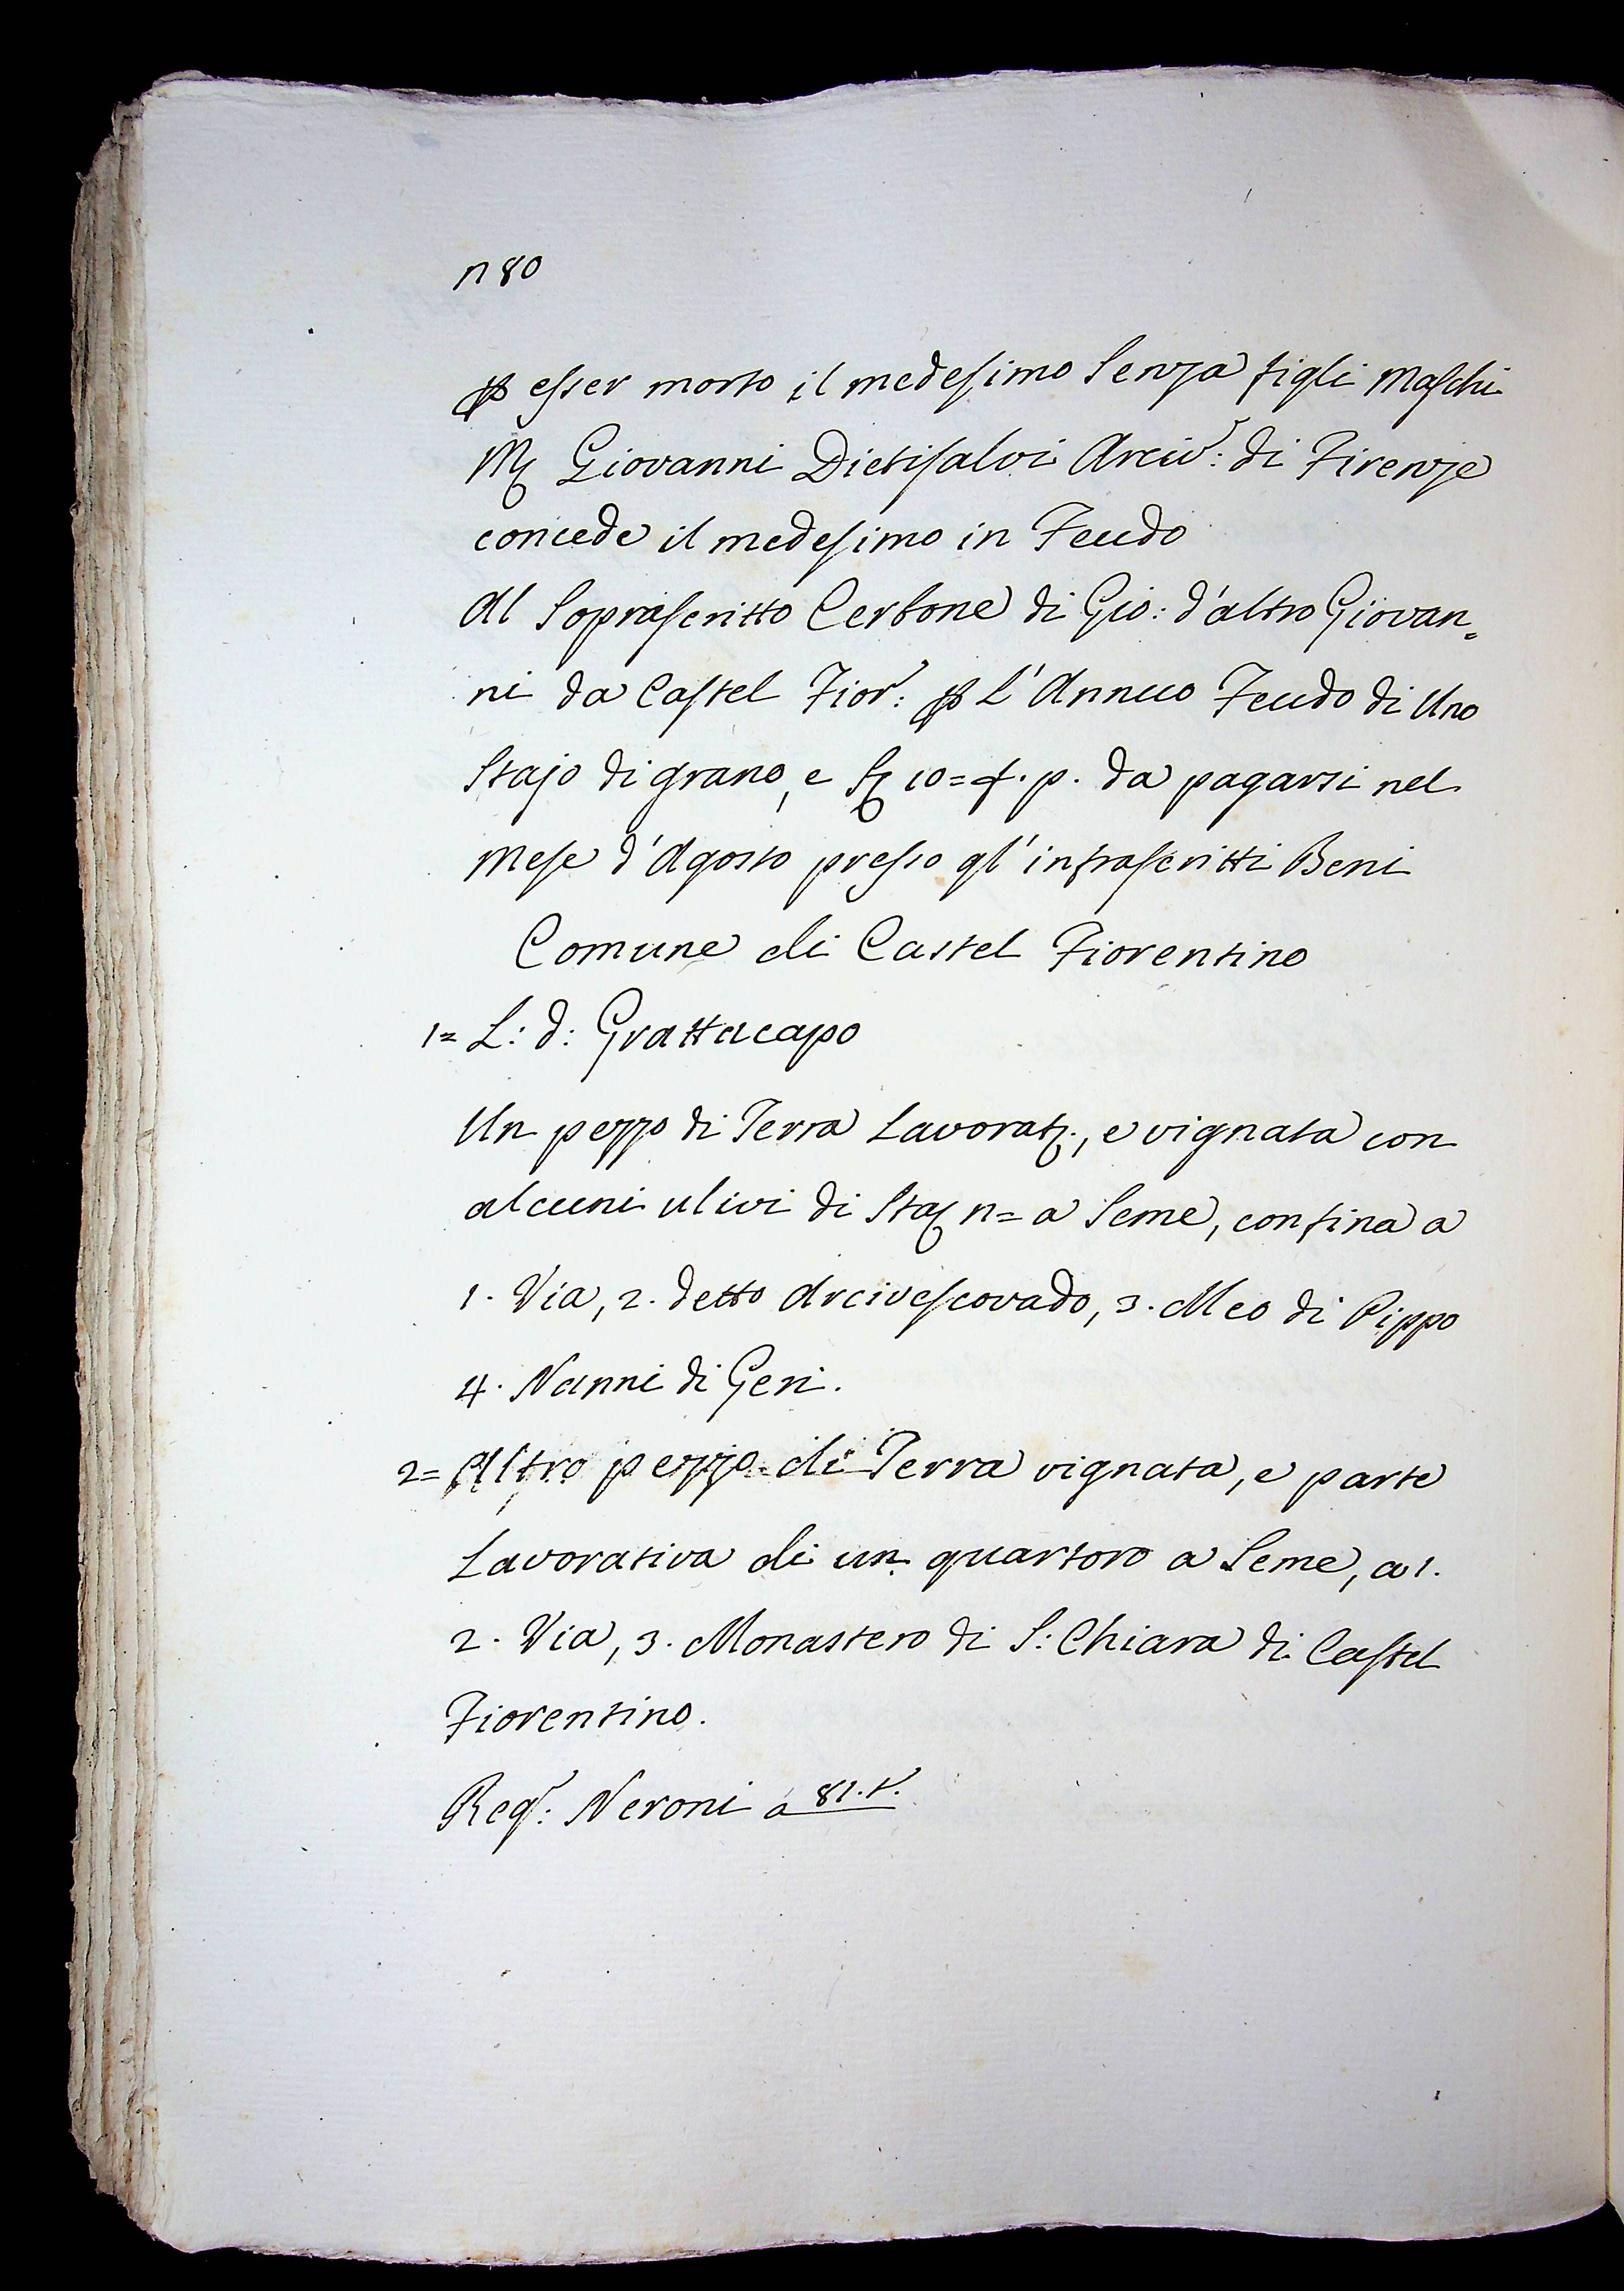 n 80
ꝑ esser morto il medesimo Senza figli Maschi
M Giovanni Dietisalvi Arciv: di Firenze
concede il medesimo in Feudo
Al Soprascritto Cerbone di Gio: d'altro Giovan=
ni da Castel Fior: ꝑ l'Annuo Feudo di Uno
Stajo di grano, e 10= f. p. da pagarsi nel
Mese d'Agosto presso gl'infrascritti Beni
Comune di Castel Fiorentino
1= L: d: Grattacapo
Un pezzo di Terra Lavorat:, e vignata con
alcuni ulivi di Sta n= a Seme, confina a
1. Via, 2. detto Arcivescovado, 3. Meo di Pippo
4. Nanni di Geri.
2= Altro pezzo di Terra vignata, e parte
Lavorativa di un quartoro a Seme, a 1.
2. Via, 3. Monastero di S: Chiara di Castel
Fiorentino.
Reg: Neroni a 81.t.